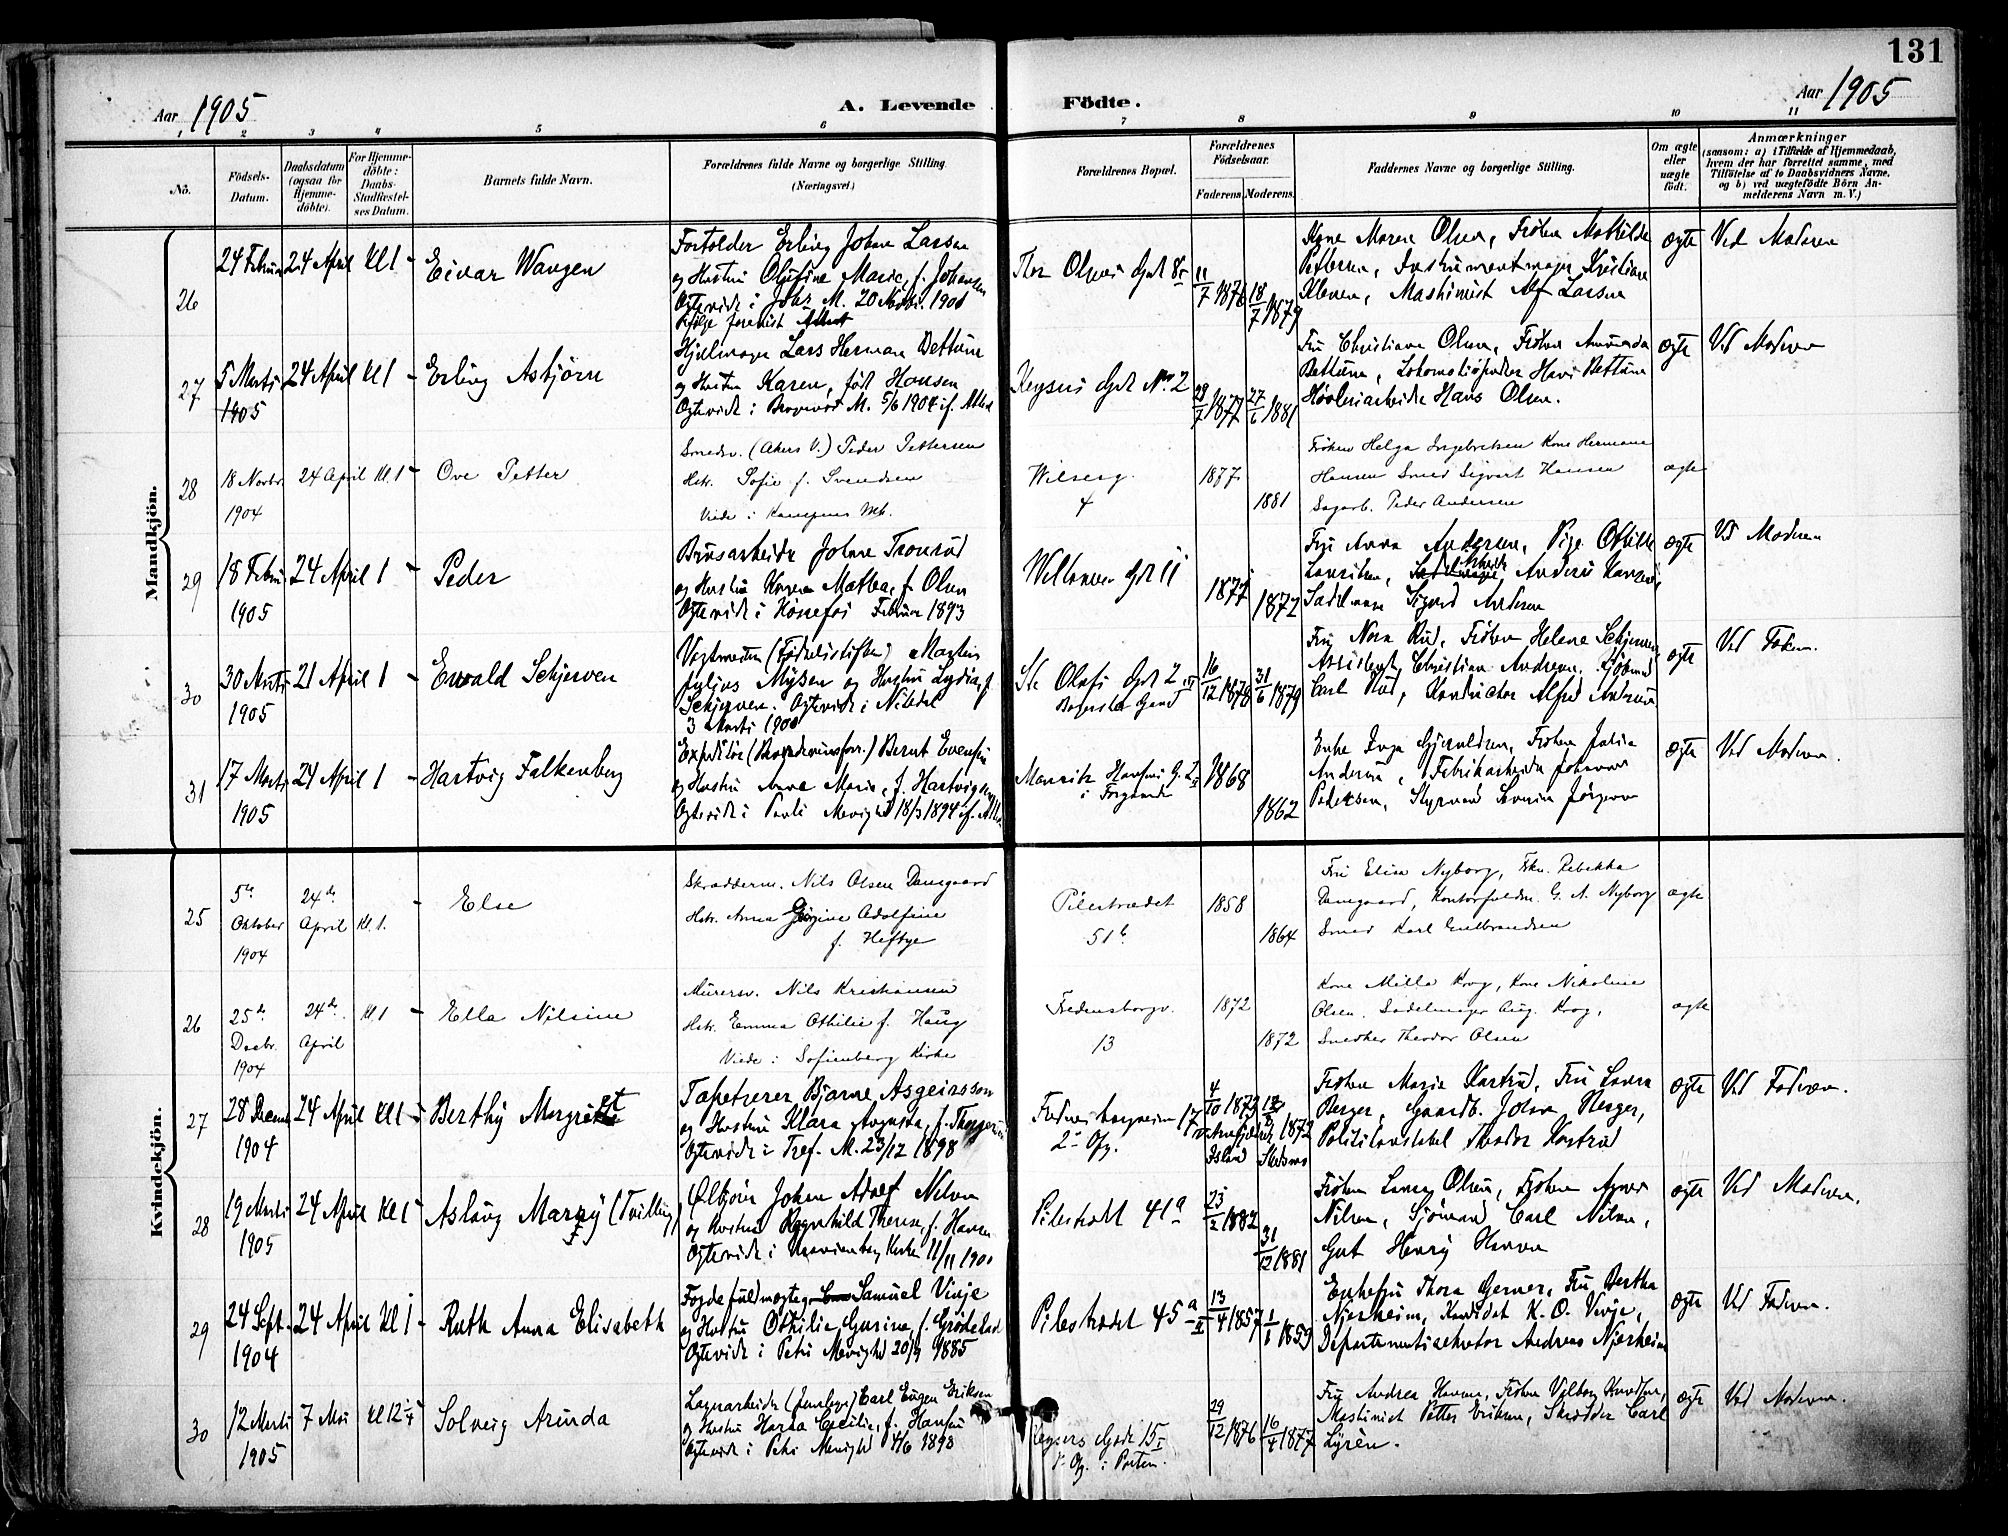 131
Aar 1905
A. Levende Födte.
Aar 1905
1 2 3 4 5 6 7 8 9 10 11
No.
Födsels-Datum.
Daabsdatum (ogsaa for Hjemme-döbte).
For Hjemme-döbte: Daabs-Stadfæstel-ses Datum.
Barnets fulde Navn.
Forældrenes fulde Navne og borgerlige Stilling. (Næringsvei.)
Forældrenes Bopæl.
Forældrenes Födselsaar.
Faderens. Moderens.
Faddernes Navne og borgerlige Stilling.
Om ægte eller uægte födt.
Anmærkninger
(saasom: a) i Tilfælde af Hjemmedaab, hvem der har forrettet samme, med Tilföielse af to Daabsvidners Navne, og b) ved uægtefödte Börn An-melderens Navn m. V.)
Mandkjön.
26 24 Februar 24 April Kl 1 - Eivar Wangen
Fortolder Erling Johan Larsen
og Hustru Olufine Marie, f. Johansen
Ogteviede i Johs M. 20 Novbr. 1900
ifølge forevist Attest
Thor Olsens Gade 8
11/7 1876 18/7 1879
Kone Maren Olsen, Frøken Mathilde
Pettersen, Instrumentmager Kristian
Kleven, Maskinist Alf Larsen
ægte Ved Moderen
27 5 Marts 1905 24 April Kl 1 - Erling Asbjörn
Hjulmager Lars Herman Dettum
og Hustru Karen, født Hansen
Ogteviede i M. 5/6 1904 if. Attest
Keysers Gade No 2
28/7 1877 27/6 1881
Fru Christiane Olsen, Frøken Amunda
Hans Olsen.
ægte Ved Moderen
28 18 Novbr. 1904 24 April Kl. 1 - Ove Petter
Smedsv. (Akers V.) Peder Pettersen
Hstr. Sofie f. Svendsen
Viede i Kampens Mk.
Wilserg. 4
1877 1881
Frøken Helga Ingebretsen Kone Hermane
Hansen Smed Sigvart Hansen
Sagarb. Peder Andersen
ægte
29 18 Februar 1905 24 April 1 - Peder
Brusarbeider Johan Tronsrud
og Hustru Karen Mathea, f. Olsen
Ogteviede i Hönefos Februar 1893
Gade 11
1872
Fru Anna Andersen, Pige Othilde
Lauritsen, Anders Hansen,
Sadelmager Sigurd Andersen
ægte Ved Moderen
30 30 Marts 1905 21 April 1 - Ewald Schjerven
Vagtmester (Fødselsstiftelsen) Martin
Julius Mysen og Hustru Lydia, f.
Schjerven. Ogteviede i Nitedal
3 Marts 1900
St. Olafs Gade 2 III
16/12 1878 31/6 1879
Fru Nora Rud, Frøken Helene Schjerven,
Assistent Christian Andersen, Sjömand
Carl Rud, Konduktør Alfred Andersen
ægte Ved Faderen.
31 17 Marts 1905 24 April 1 - Hartvig Falkenberg
Expeditör Bernt Evensen
og Hustru Anna Marie, f. Hartvigsen
Ogteviede i Pauls Menighed 18/3 1894 if. Attest
Mauritz Hansens G. 2 II i Forgaarden
1868 1862
Enke Inga Gjeruldsen, Frøken Julia
Andersen, Fabrikarbeider Johannes
Pedersen, Styrmand Severin Jörgensen
ægte Ved Moderen.
Kvindekjön.
25 5te Oktober 1904 24de April Kl. 1. - Else
Skrædderm. Nils Olsen Damgaard
Hstr. Anna Georgine Adolfine
f. Heftye
Pilestrædet 51b
1858 1864
Fru Elise Nyborg, Frkn. Rebekka
Damgaard, Kontorfuldm. G. A. Nyborg
Smed Karl Gulbrandsen
ægte
26 25de Decbr. 1904 24de April Kl. 1 - Ella Nilsine
Murersv. Nils Kristiansen
Hstr. Emma Othilie f. Haug
Viede i Sofienberg Kirke
Fredensborgv. 13
1872 1872
Kone Milla Krog, Kone Nikoline
Olsen. Sadelmager Aug. Krog,
Snedker Theodor Olsen
ægte
27 28 Decemb 1904 24 April Kl 1 - Berthy Margrethe
Tapetserer Bjarne Asgeirsson
og Hustru Klara Augusta, f. Thorgersen
Ogteviede i Tref. M. 23/12 1898
Fredensborgveien 17
2 Opg.
4/10 1873 Island 1872
Frøken Marie Kastrud, Fru Laura
Berger, Gaardb. Johan Berger,
Politikonstabel Theodor Kastrud
ægte Ved Faderen.
28 19 Marts 1905 24 April Kl 1 Aslaug Marry (Tvilling)
Ølkjører Johan Adolf Nilsen
og Hustru Ragnhild Therese, f. Hansen
Ogteviede i Kirke 11/11 1900
Pilestrædet 41a
23/2 1882 31/12 1881
Frøken Lovny Olsen, Frøken Agnes
Nilsen, Sjömand Carl Nilsen,
Gut Henry Hansen
ægte Ved Moderen.
29 24 Sept. 1904 24 April Kl 1 - Ruth Anna Elisabeth
Fogdefuldmægtig Samuel Vinje
og Hustru Othilie Gurine, f. Grödeland
Ogteviede i Petri Menighed 20/9 1885
Pilestrædet 45a II
13/4 1857 1/1 1859
Enkefru Thora Gerner, Fru Bertha
Njerheim, Kandidat K. O. Vinje,
Departementssekretær Andreas Njerheim
ægte Ved Faderen.
30 12 Marts 1905 7 Mai Kl 12 1/4 - Solveig Arunda
Lagerarbeider Carl Eugen Eriksen
og Hustru Harna Cecilie, f. Hansen
Ogteviede i Petri Menighed 4/6 1898
Keysers Gade 15 I
Opg. i Porten.
29/12 1876 16/4 1877
Fru Andrea Hansen, Frøken Valborg Knudsen,
Maskinist Petter Eriksen, Skrædder Carl
Lyrèn.
ægte Ved Moderen.